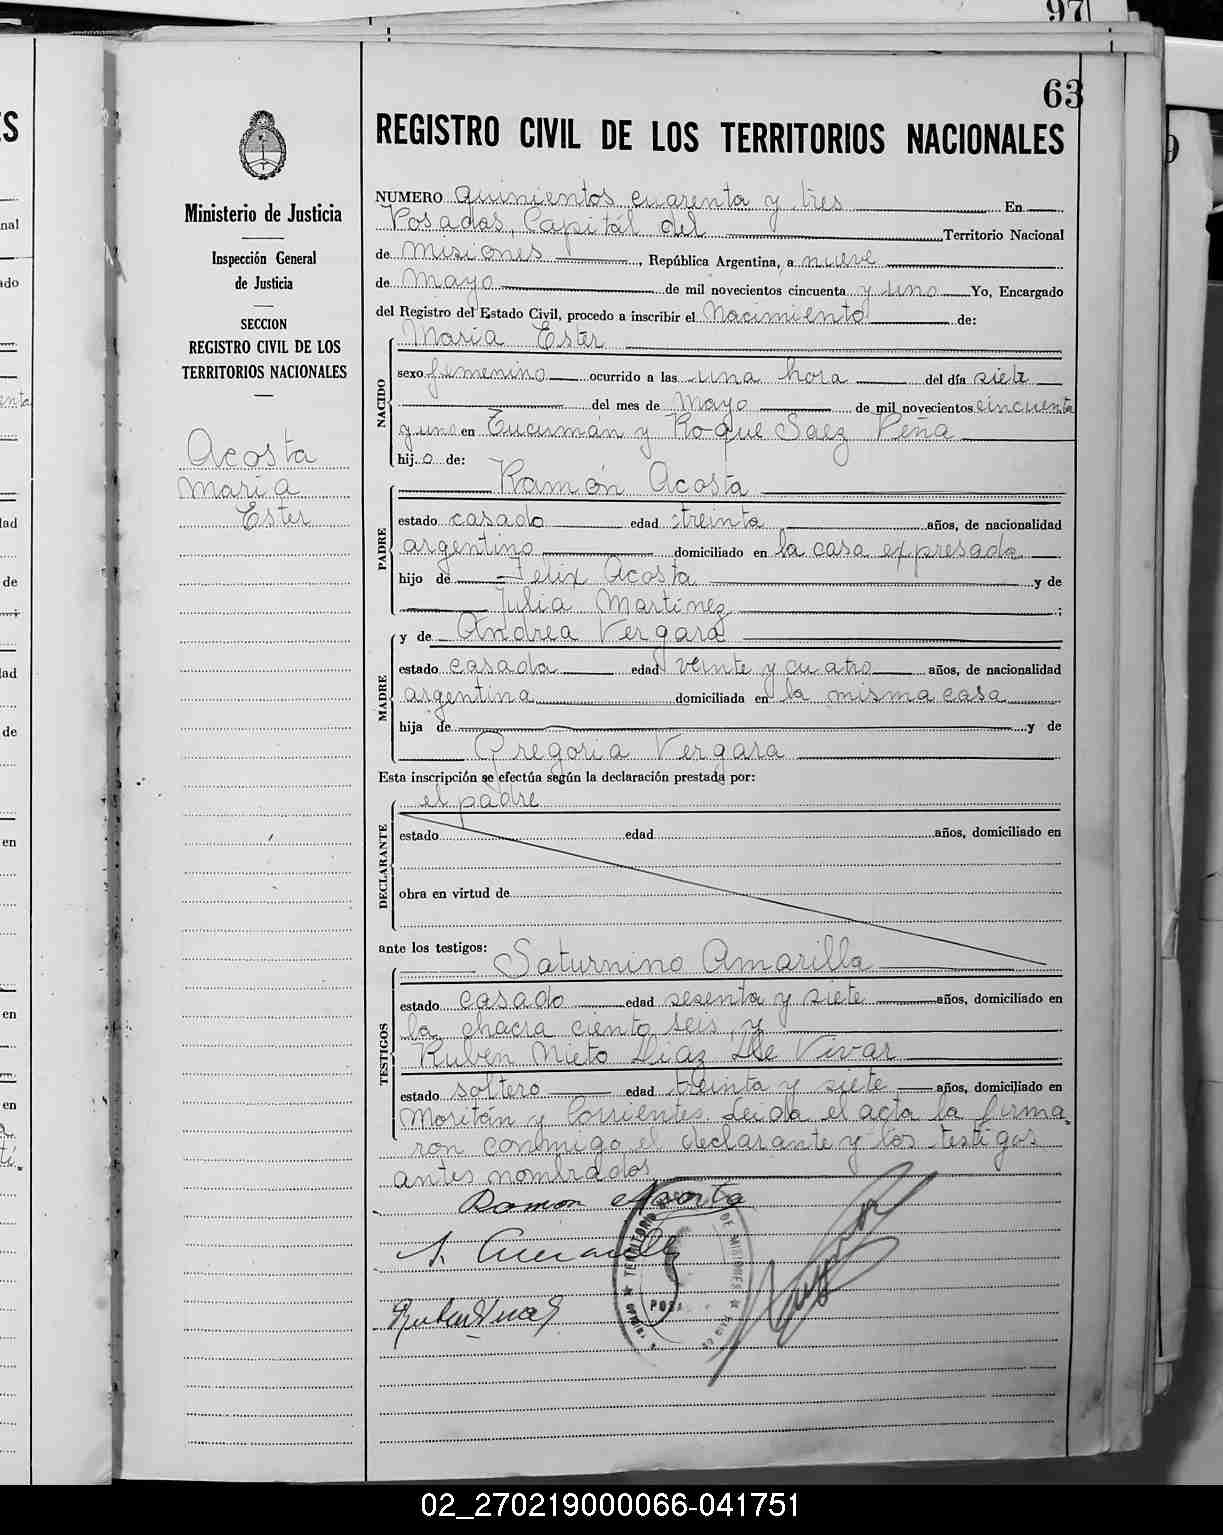 97
63
REGISTRO CIVIL DE LOS TERRITORIOS NACIONALES
Ministerio de Justicia
Inspección General
de Justicia
SECCION
REGISTRO CIVIL DE LOS
TERRITORIOS NACIONALES
Acosta
Maria
Ester
NUMERO Quinientos cuarenta y tres En
Posadas, Capitál del Territorio Nacional
de Misiones, República Argentina, a nueve
de Mayo de mil novecientos cincuenta y uno Yo, Encargado
del Registro del Estado Civil, procedo a inscribir el Nacimiento de:
NACIDO
Maria Ester
sexo femenino ocurrido a las una hora del día siete
del mes de Mayo de mil novecientos cincuenta
y uno en Tucumán y Roque Saez Peña
hij o de:
PADRE
Ramón Acosta
estado casado edad treinta años, de nacionalidad
argentino domiciliado en la casa expresada
hijo de Felix Acosta y de
Julia Martinez;
MADRE
y de Andrea Vergara
estado casada edad veinte y cuatro años, de nacionalidad
argentina domiciliada en la misma casa
hija de y de
Gregoria Vergara
Esta inscripción se efectúa según la declaración prestada por:
DECLARANTE
el padre
estado edad años, domiciliado en
obra en virtud de
ante los testigos:
TESTIGOS
Saturnino Amarilla
estado casado edad sesenta y siete años, domiciliado en
la chacra ciento seis, y
Rubén Nieto Diaz De Vivar
estado soltero edad treinta y siete años, domiciliado en
Moritán y Corrientes. Leida el acta la firma
ron conmigo el declarante y los testigos
antes nombrados
Ramon Acosta
TERRITORIO DE MISIONES
POSA
02_270219000066-041751